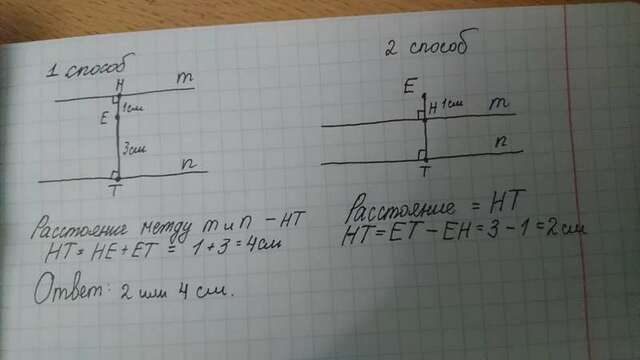 1 способ
H
m
1см
E
3см
n
T
Расстояние между m и n - HT
HT = HE + ET = 1 + 3 = 4 см
Ответ: 2 или 4 см.
2 способ
E
H 1см m
n
T
Расстояние = HT
HT = ET - EH = 3 - 1 = 2 см